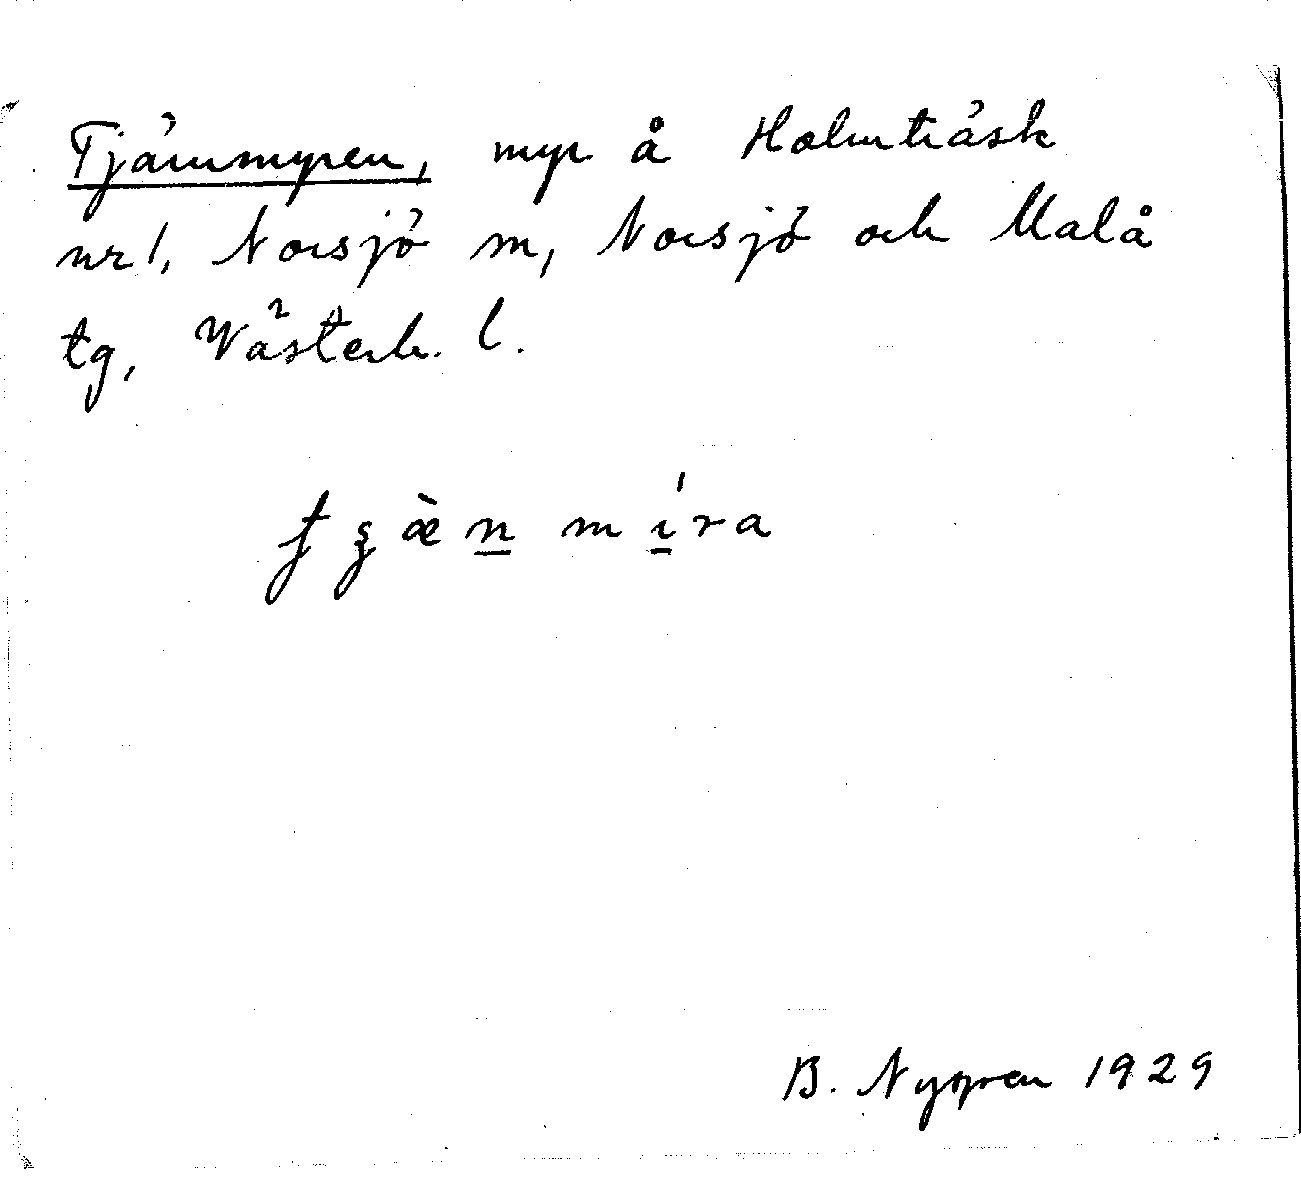 Tjärnmyren, myr å Holmträsk
nr 1, Norsjö sn, Norsjö och Malå
tg, Västerb. l.
m í̱ra
B. Nygren 1929